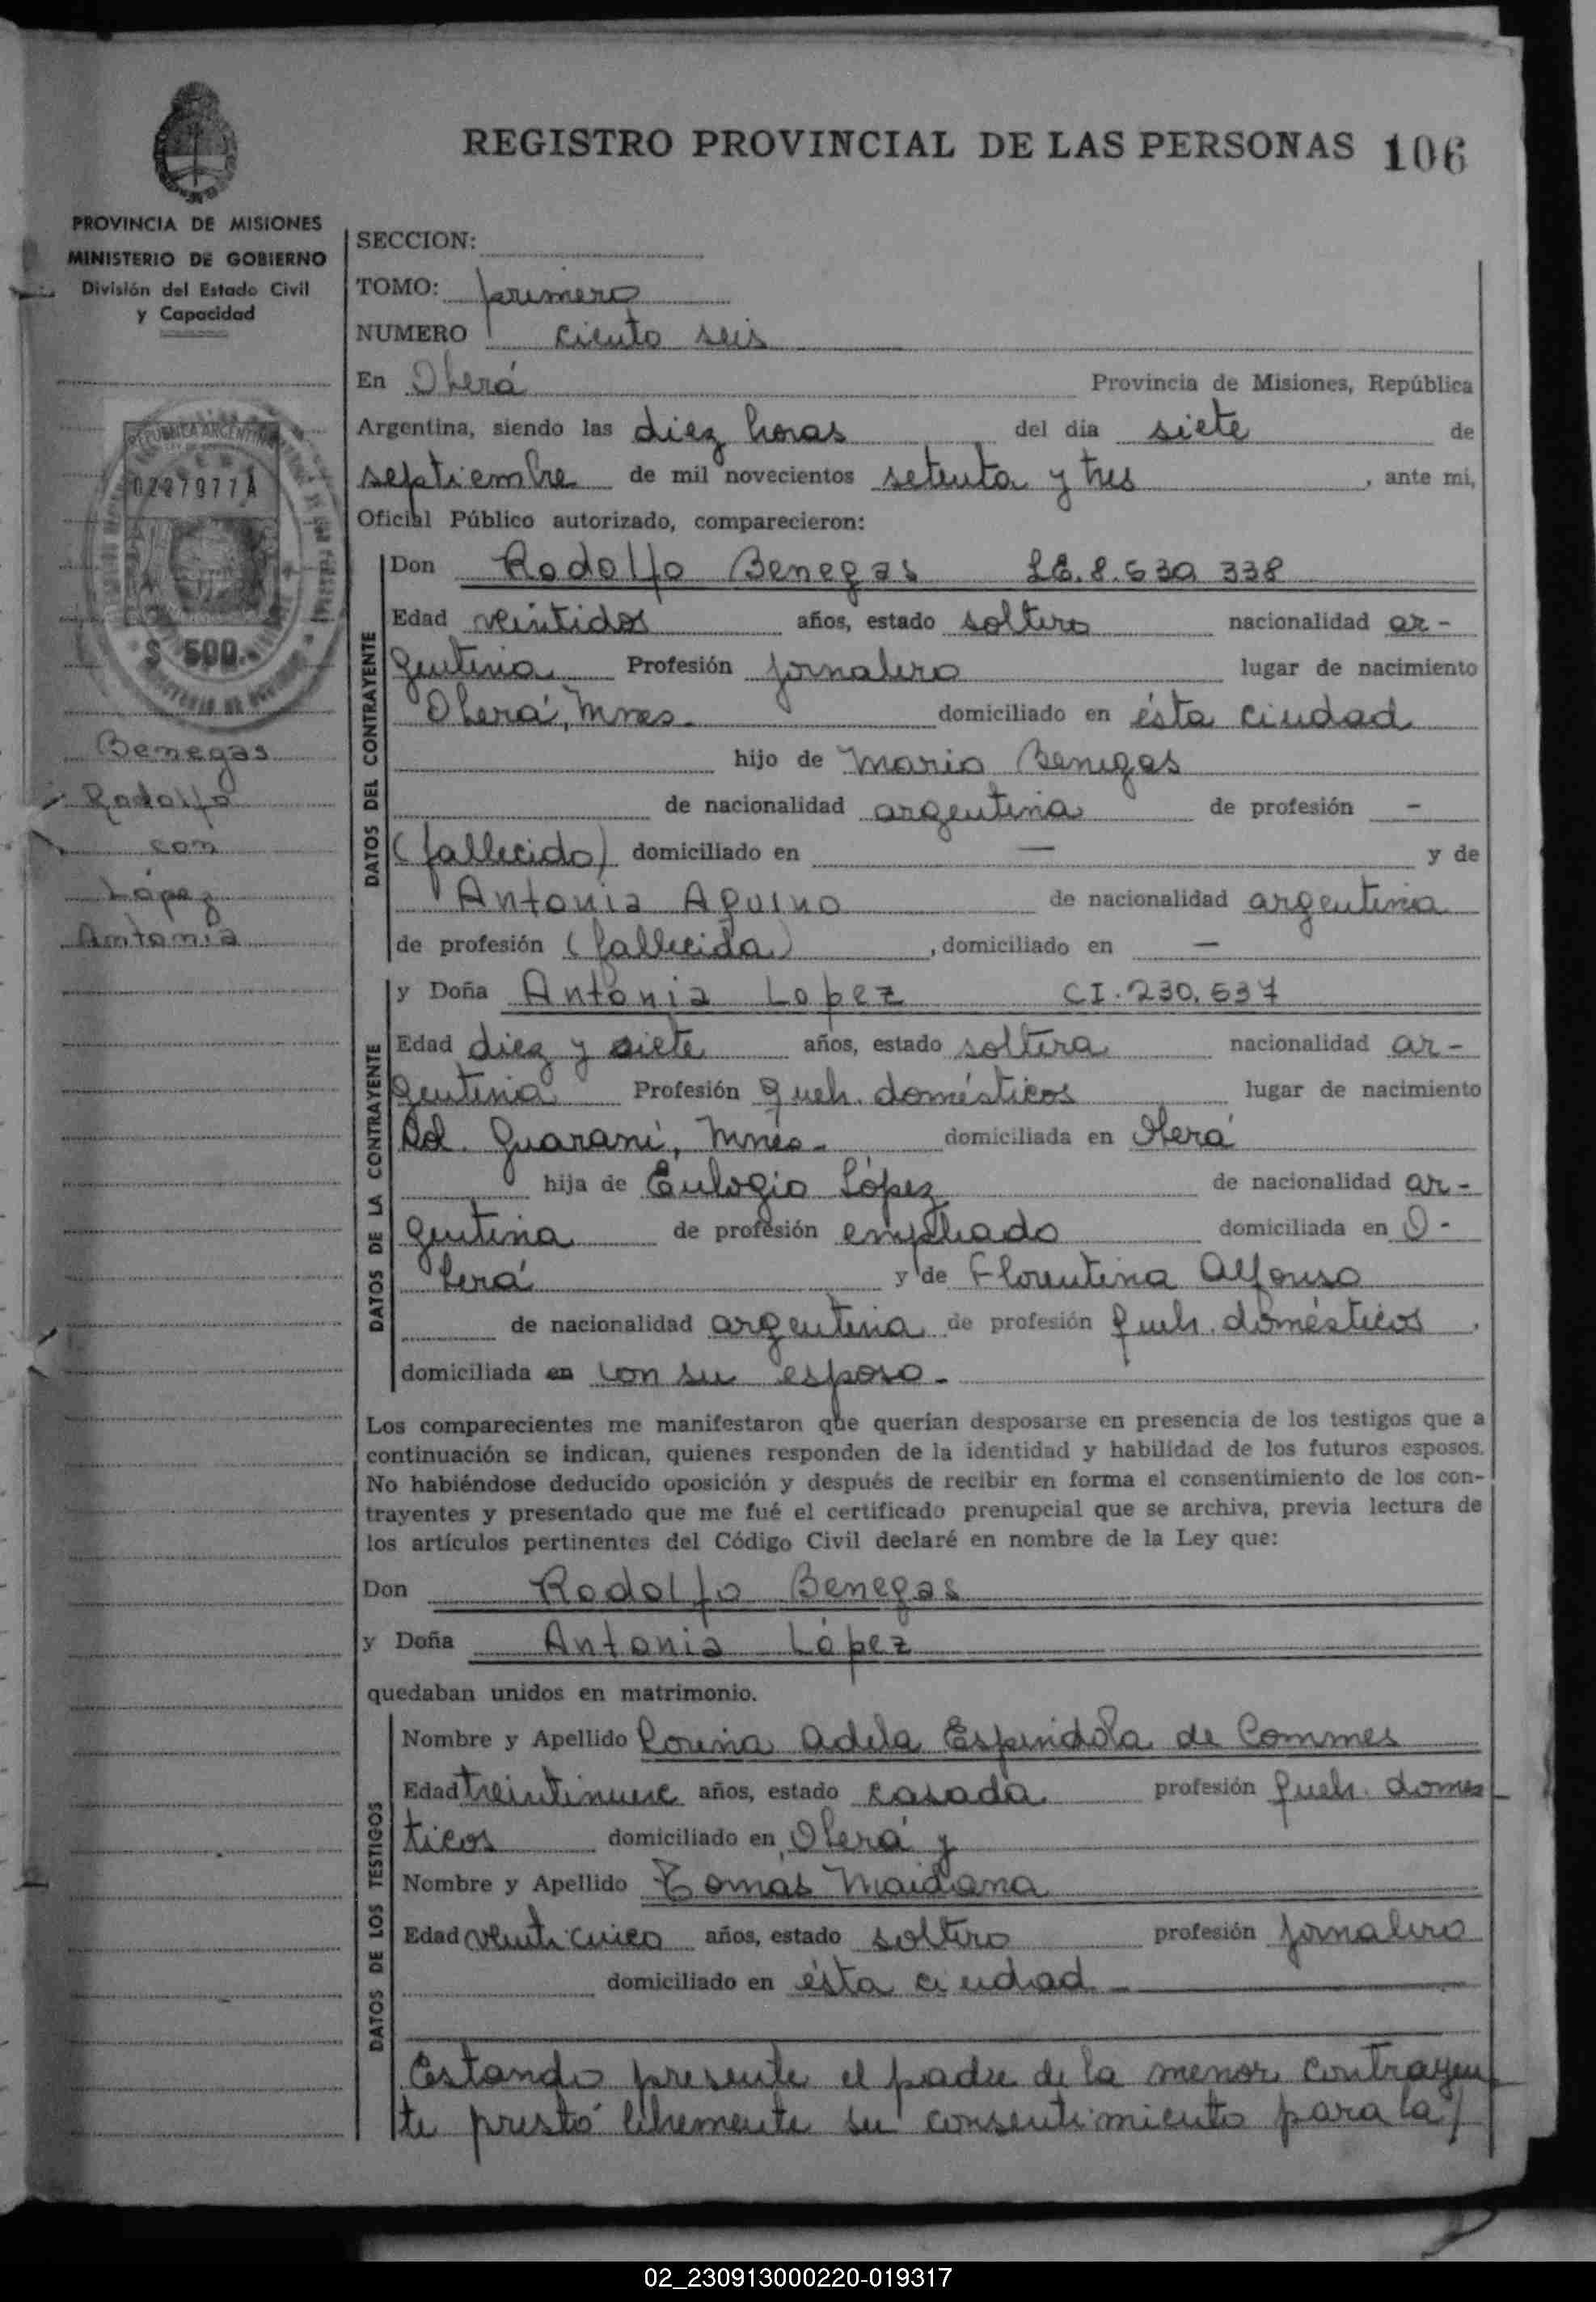 REGISTRO PROVINCIAL DE LAS PERSONAS 106
PROVINCIA DE MISIONES
MINISTERIO DE GOBIERNO
División del Estado Civil
y Capacidad
REPUBLICA ARGENTINA
0227977A
$ 500.-
Benegas
Rodolfo
con
López
Antonia
SECCION:
TOMO: primero
NUMERO ciento seis
En Oberá Provincia de Misiones, República
Argentina, siendo las diez horas del día siete de
septiembre de mil novecientos setenta y tres, ante mi,
Oficial Público autorizado, comparecieron:
DATOS DEL CONTRAYENTE
Don Rodolfo Benegas LE. 8.630 338
Edad veintidos años, estado soltero nacionalidad ar-
gentina Profesión jornalero lugar de nacimiento
Oberá, Mnes. domiciliado en ésta ciudad
hijo de Mario Benegas
de nacionalidad argentina de profesión -
(fallecido) domiciliado en — y de
Antonia Aquino de nacionalidad argentina
de profesión (fallecida), domiciliado en —
DATOS DE LA CONTRAYENTE
y Doña Antonia Lopez CI. 230.637
Edad diez y siete años, estado soltera nacionalidad ar-
gentina Profesión queh. domésticos lugar de nacimiento
Col. Guaraní, Mnes- domiciliada en Oberá
hija de Eulogio López de nacionalidad ar-
gentina de profesión empleado domiciliada en O-
berá y de Florentina Alfonso
de nacionalidad argentina de profesión queh. domésticos,
domiciliada en con su esposo.
Los comparecientes me manifestaron que querían desposarse en presencia de los testigos que a
continuación se indican, quienes responden de la identidad y habilidad de los futuros esposos.
No habiéndose deducido oposición y después de recibir en forma el consentimiento de los con-
trayentes y presentado que me fué el certificado prenupcial que se archiva, previa lectura de
los artículos pertinentes del Código Civil declaré en nombre de la Ley que:
Don Rodolfo Benegas
y Doña Antonia López
quedaban unidos en matrimonio.
DATOS DE LOS TESTIGOS
Nombre y Apellido Adela Espindola de Commes
Edad treintinueve años, estado casada profesión queh. domes
ticos domiciliado en Oberá y
Nombre y Apellido Tomás Maidana
Edad veinticinco años, estado soltero profesión jornalero
domiciliado en ésta ciudad
Estando presente el padre de la menor contrayen
te prestó libremente su consentimiento para la/
02_230913000220-019317